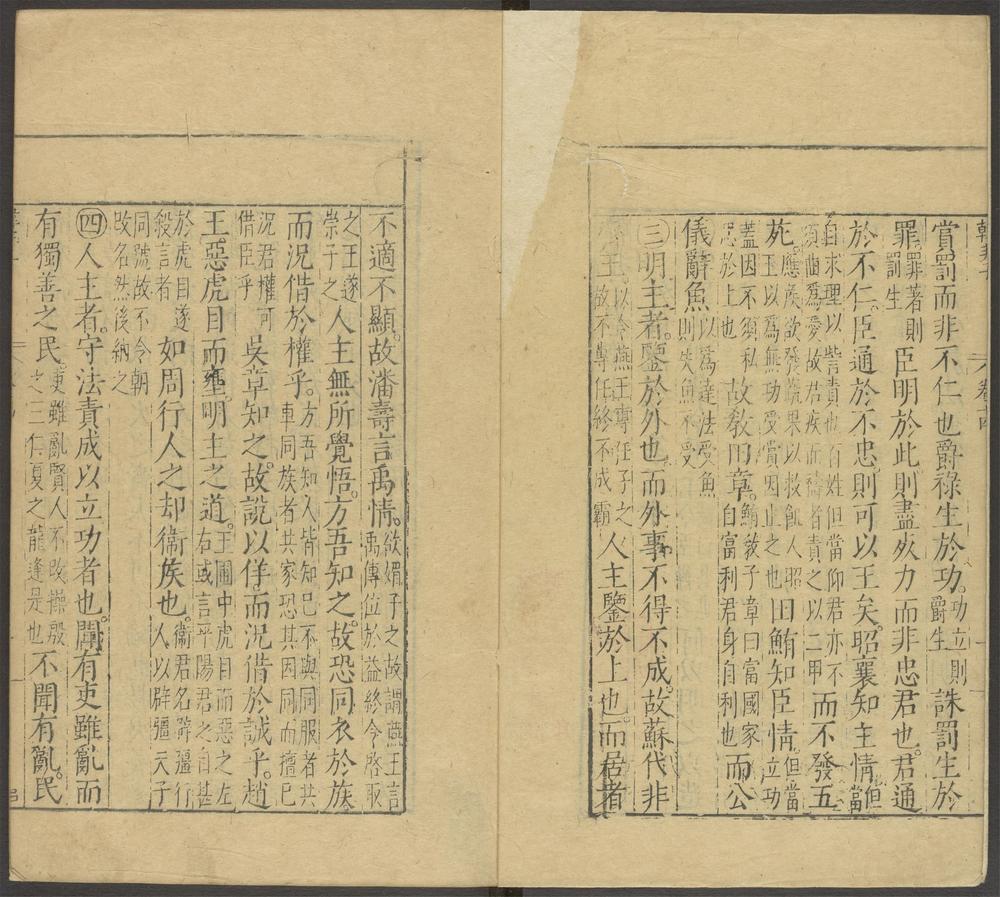 賞罰而非不仁也爵祿生於功功立則爵生誅罰生於
罪罪著則罰生臣明於此則盡死力而非忠君也君通
於不仁臣通於不忠則可以王矣昭襄知主情但當
自求理以訾責也百姓但當仰君亦不須曲爲愛故君疾而禱者責之以二甲而不發五
苑應侯欲發蔬果以救飢人昭王以爲無功受賞因止之也田鮪知臣情但當立功
蓋因不須私恩於上也故教田章鮪教子章曰富國家自富利君身自利也而公
儀辭魚以爲違法受魚則失魚不受
三明主者鑒於外也而外事不得不成故蘇代非
王以令燕王專任子之故不專任終不成霸人主鑒於上也而居者
不適不顯故潘壽言禹情欲媚子之故謂燕王言禹傳位於益終令啓取
之王遂崇子之人主無所覺悟方吾知之故恐同衣於族
而況借於權乎方吾知人皆知己不與同服者共車同族者共家恐其因同而擅己
況君權可借臣乎吳章知之故說以佯而況借於誠乎趙
王惡虎目而壅明主之道王圃中虎目而惡之左右或言平陽君之目甚
於虎目遂殺言者如周行人之却衞侯也衞君名辟疆行人以辟疆天子
同號故不令朝改名然後納之
四人主者守法責成以立功者也聞有吏雖亂而
有獨善之民吏雖亂賢人不改操殷之三仁夏之龍逢是也不聞有亂民